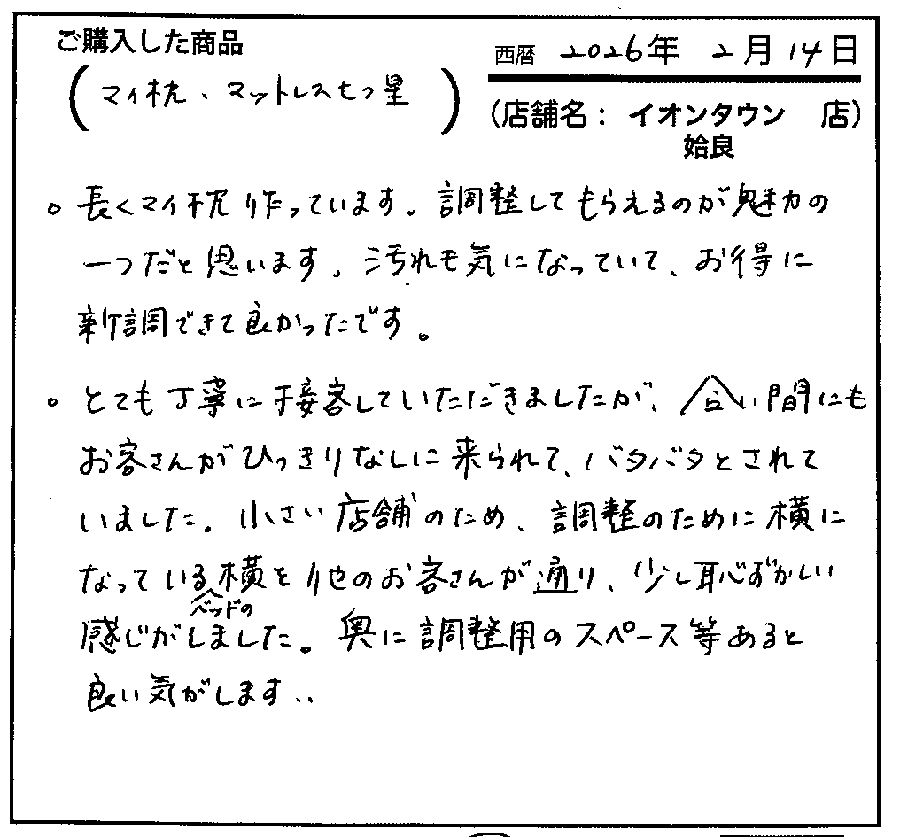 ご購入した商品
(マイ枕、マットレス七つ星)
西暦 2026年 2月14日
(店舗名: イオンタウン 店)
姶良
。長くマイ枕作っています。調整してもらえるのが魅力の
一つだと思います。汚れも気になっていて、お得に
新調できて良かったです。
。とても丁寧に接客していただきましたが、合い間にも
お客さんがひっきりなしに来られて、バタバタとされて
いました。小さい店舗のため、調整のために横に
なっている横を他のお客さんが通り、少し恥ずかしい
ベッドの
感じがしました。奥に調整用のスペース等あると
良い気がします..